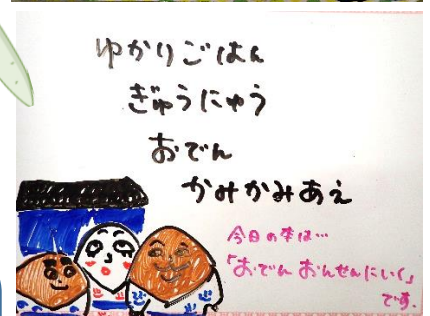 ゆかりごはん
ぎゅうにゅう
おでん
かみかみあえ
今日の本は…
「おでん おんせんにいく」
です。